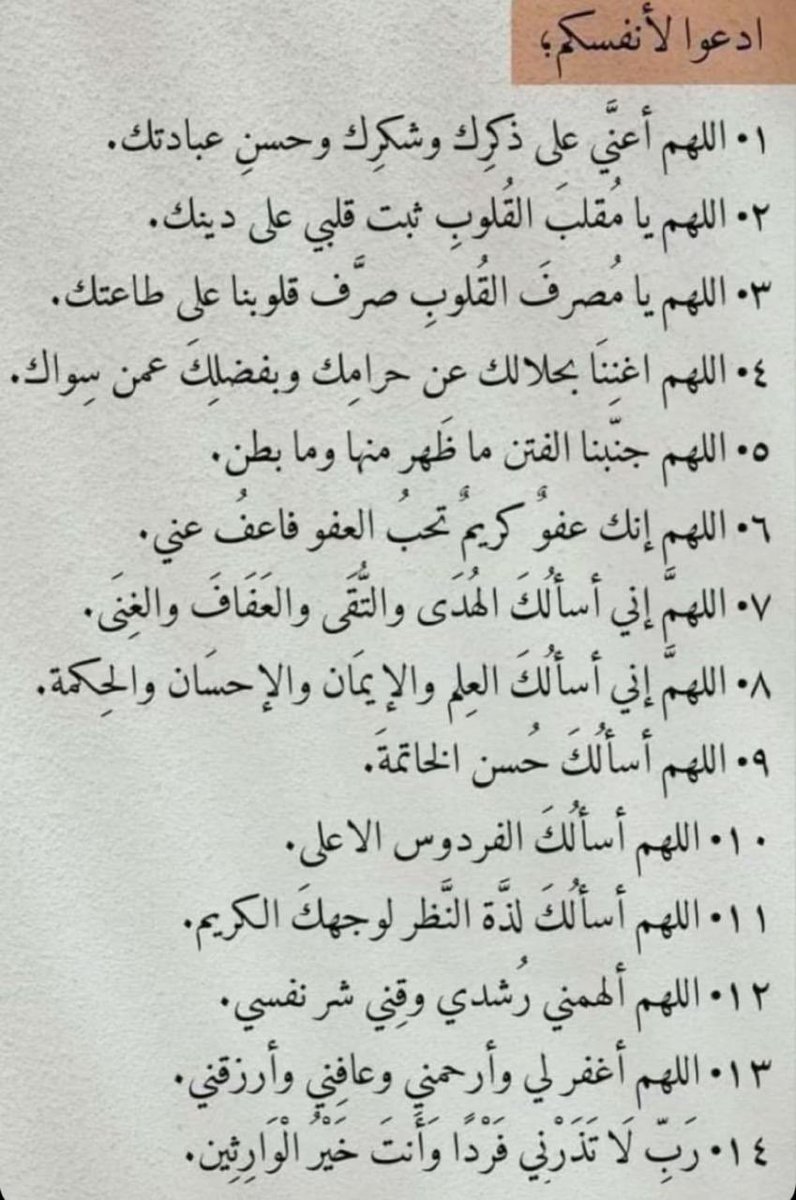 ادعوا لأنفسكم؛
١• اللهم أعنَّي على ذكرِك وشكرِك وحسنِ عبادتك.
٢• اللهم يا مُقلبَ القُلوبِ ثبت قلبي على دينك.
٣• اللهم يا مُصرفَ القُلوبِ صرَّف قلوبنا على طاعتك.
٤• اللهم اغنِننَا بحلالك عن حرامِك وبفضلِكَ عمن سِواك.
٥• اللهم جنّبنا الفتن ما ظَهر منها وما بطن.
٦• اللهم إنك عفوٌ كريمٌ تحبُ العفو فاعفُ عني.
٧• اللهمَّ إني أسألُكَ الهُدَى والتُّقَى والعَفَافَ والغِنَى.
٨• اللهمَّ إني أسألُكَ العِلم والإيمَان والإحسَان والحِكمة.
٩• اللهم أسألُكَ حُسن الخاتمةَ.
١٠• اللهم أسألُكَ الفردوس الاعلى.
١١• اللهم أسألُكَ لذَّة النَّظر لوجهكَ الكريم.
١٢• اللهم ألهمني رُشدي وقِني شر نفسي.
١٣• اللهم أغفر لي وأرحمني وعافِني وأرزقني.
١٤• رَبِّ لَا تَذَرْنِي فَرْدًا وَأَنتَ خَيْرُ الْوَارِثِين.